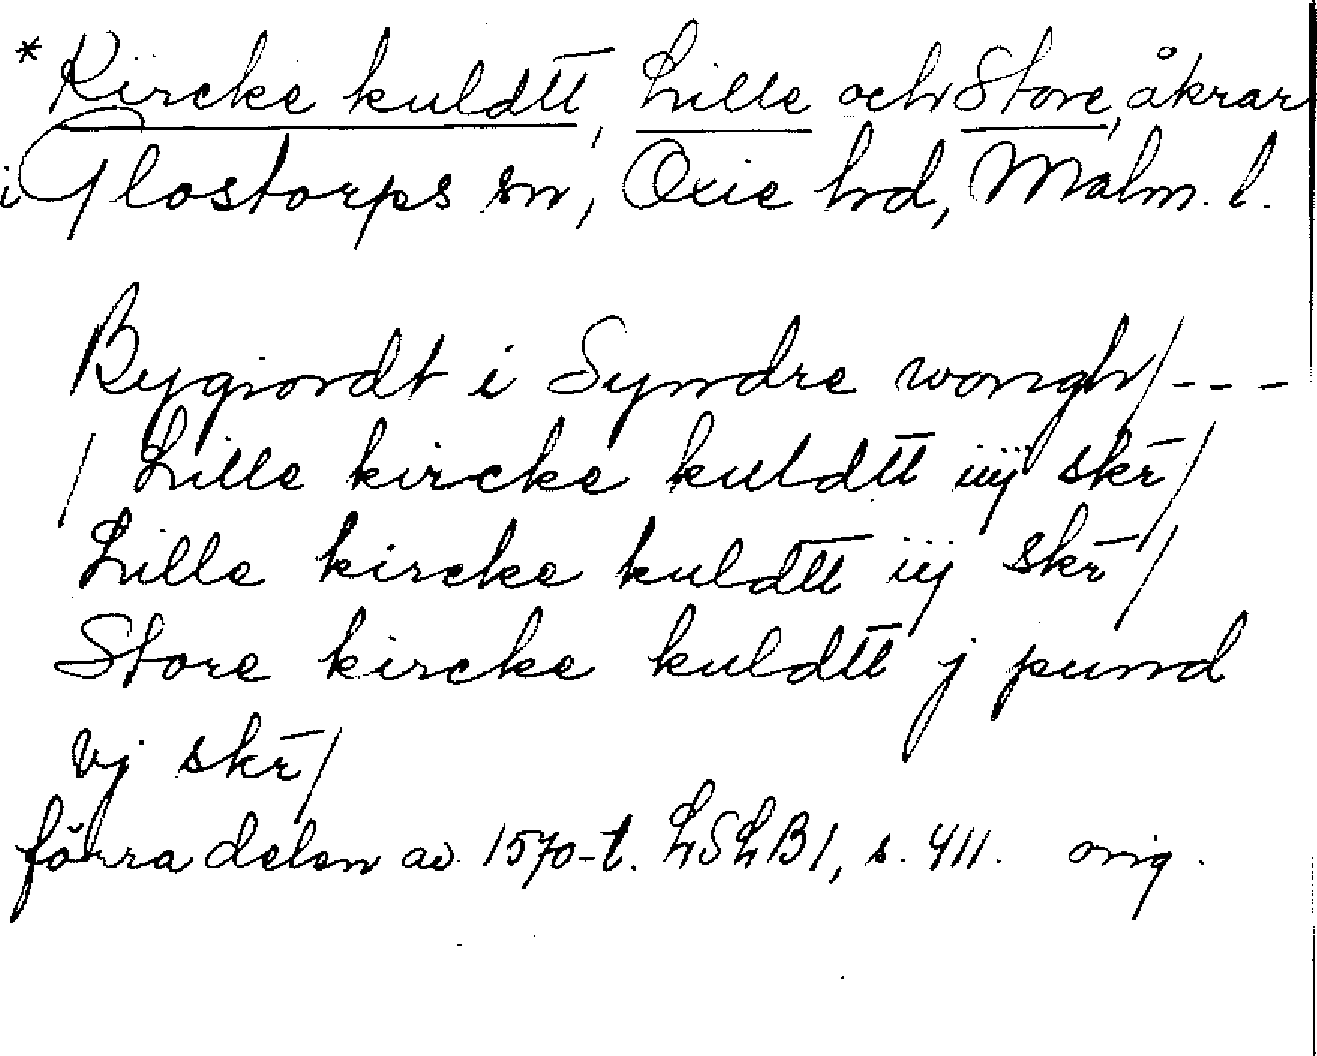 * Kircke kuldtt̅, Lille och Store, åkrar
i Glostorps sn, Oxie hd, Malm. l.
Bygiordt i Syndre wongh/ - - -
/ Lille kircke kuldtt̅ iiij skr̅/
Lille kircke kuldtt̅ iij skr̅/
Store kircke kuldtt̅ j pund
vj skr̅/
förra delen av 1570-t. LSLB1, s. 411. orig.